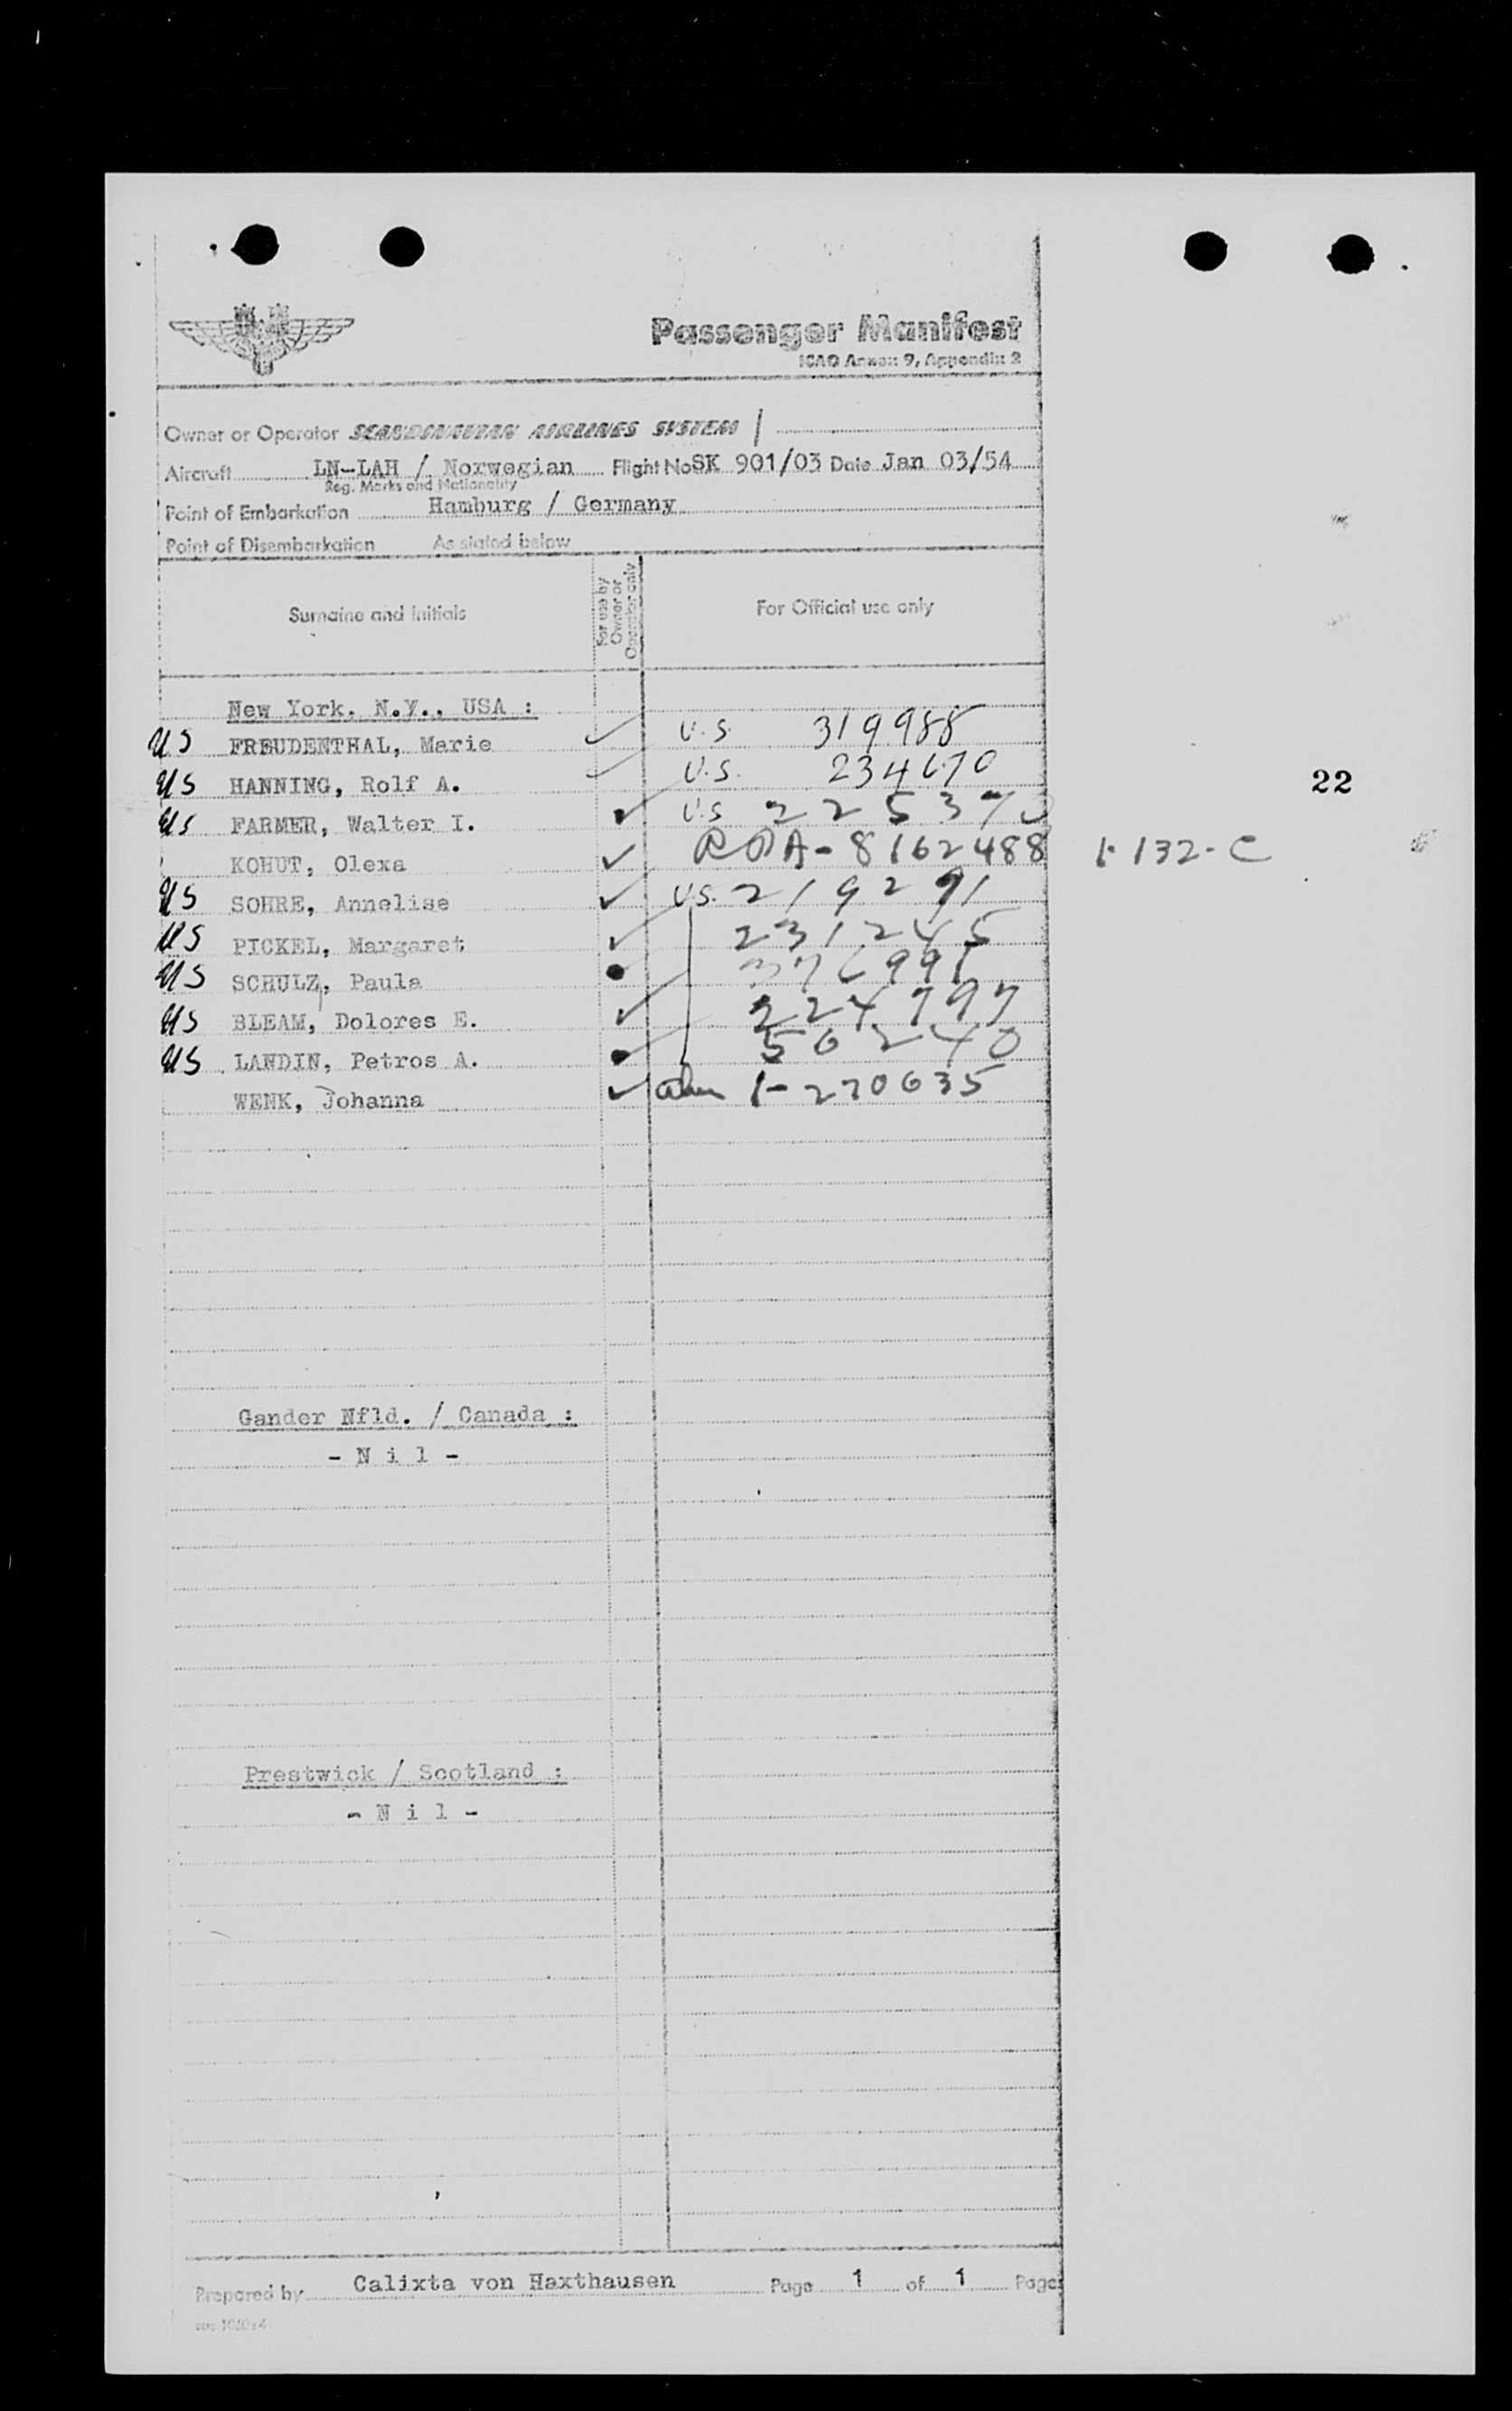 Passenger Manifest
ICAO Annex 9, Appendix 2
Owner or Operator SCANDINAVIAN AIRLINES SYSTEM
Aircraft LN-LAH / Norwegian Flight No SK 901/03 Date Jan 03/54
Reg. Marks and Nationality
Point of Embarkation Hamburg / Germany
Point of Disembarkation As stated below
Surname and Initials
For use by Owner or Operator only
For Official use only
New York. N.Y., USA :
US FREUDENTHAL, Marie U.S. 319988
US HANNING, Rolf A. U.S. 234670
22
US FARMER, Walter I. U.S
KOHUT, Olexa A-8162488 1-132-C
US SOHRE, Annelise US. 219291
US PICKEL, Margaret 231245
US SCHULZ, Paula
US BLEAM, Dolores E. 224797
US LANDIN, Petros A. 56240
WENK, Johanna 1-270635
Gander Nfld. / Canada :
- N i l -
Prestwick / Scotland :
- N i l -
Prepared by Calixta von Haxthausen Page 1 of 1 Pages